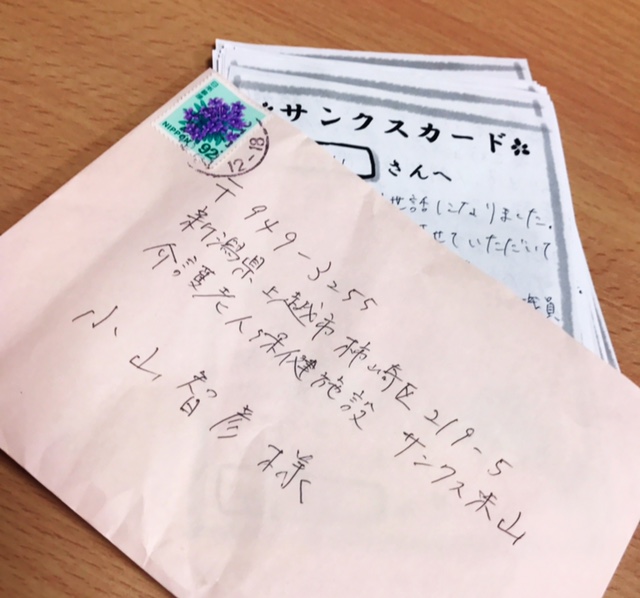 NIPPON 92
12-18
〒949-3255
新潟県上越市柿崎区219-5
介護老人保健施設 サンクス米山
小山智彦 様
サンクスカード
さんへ
世話になりました。
せていただいて
職員